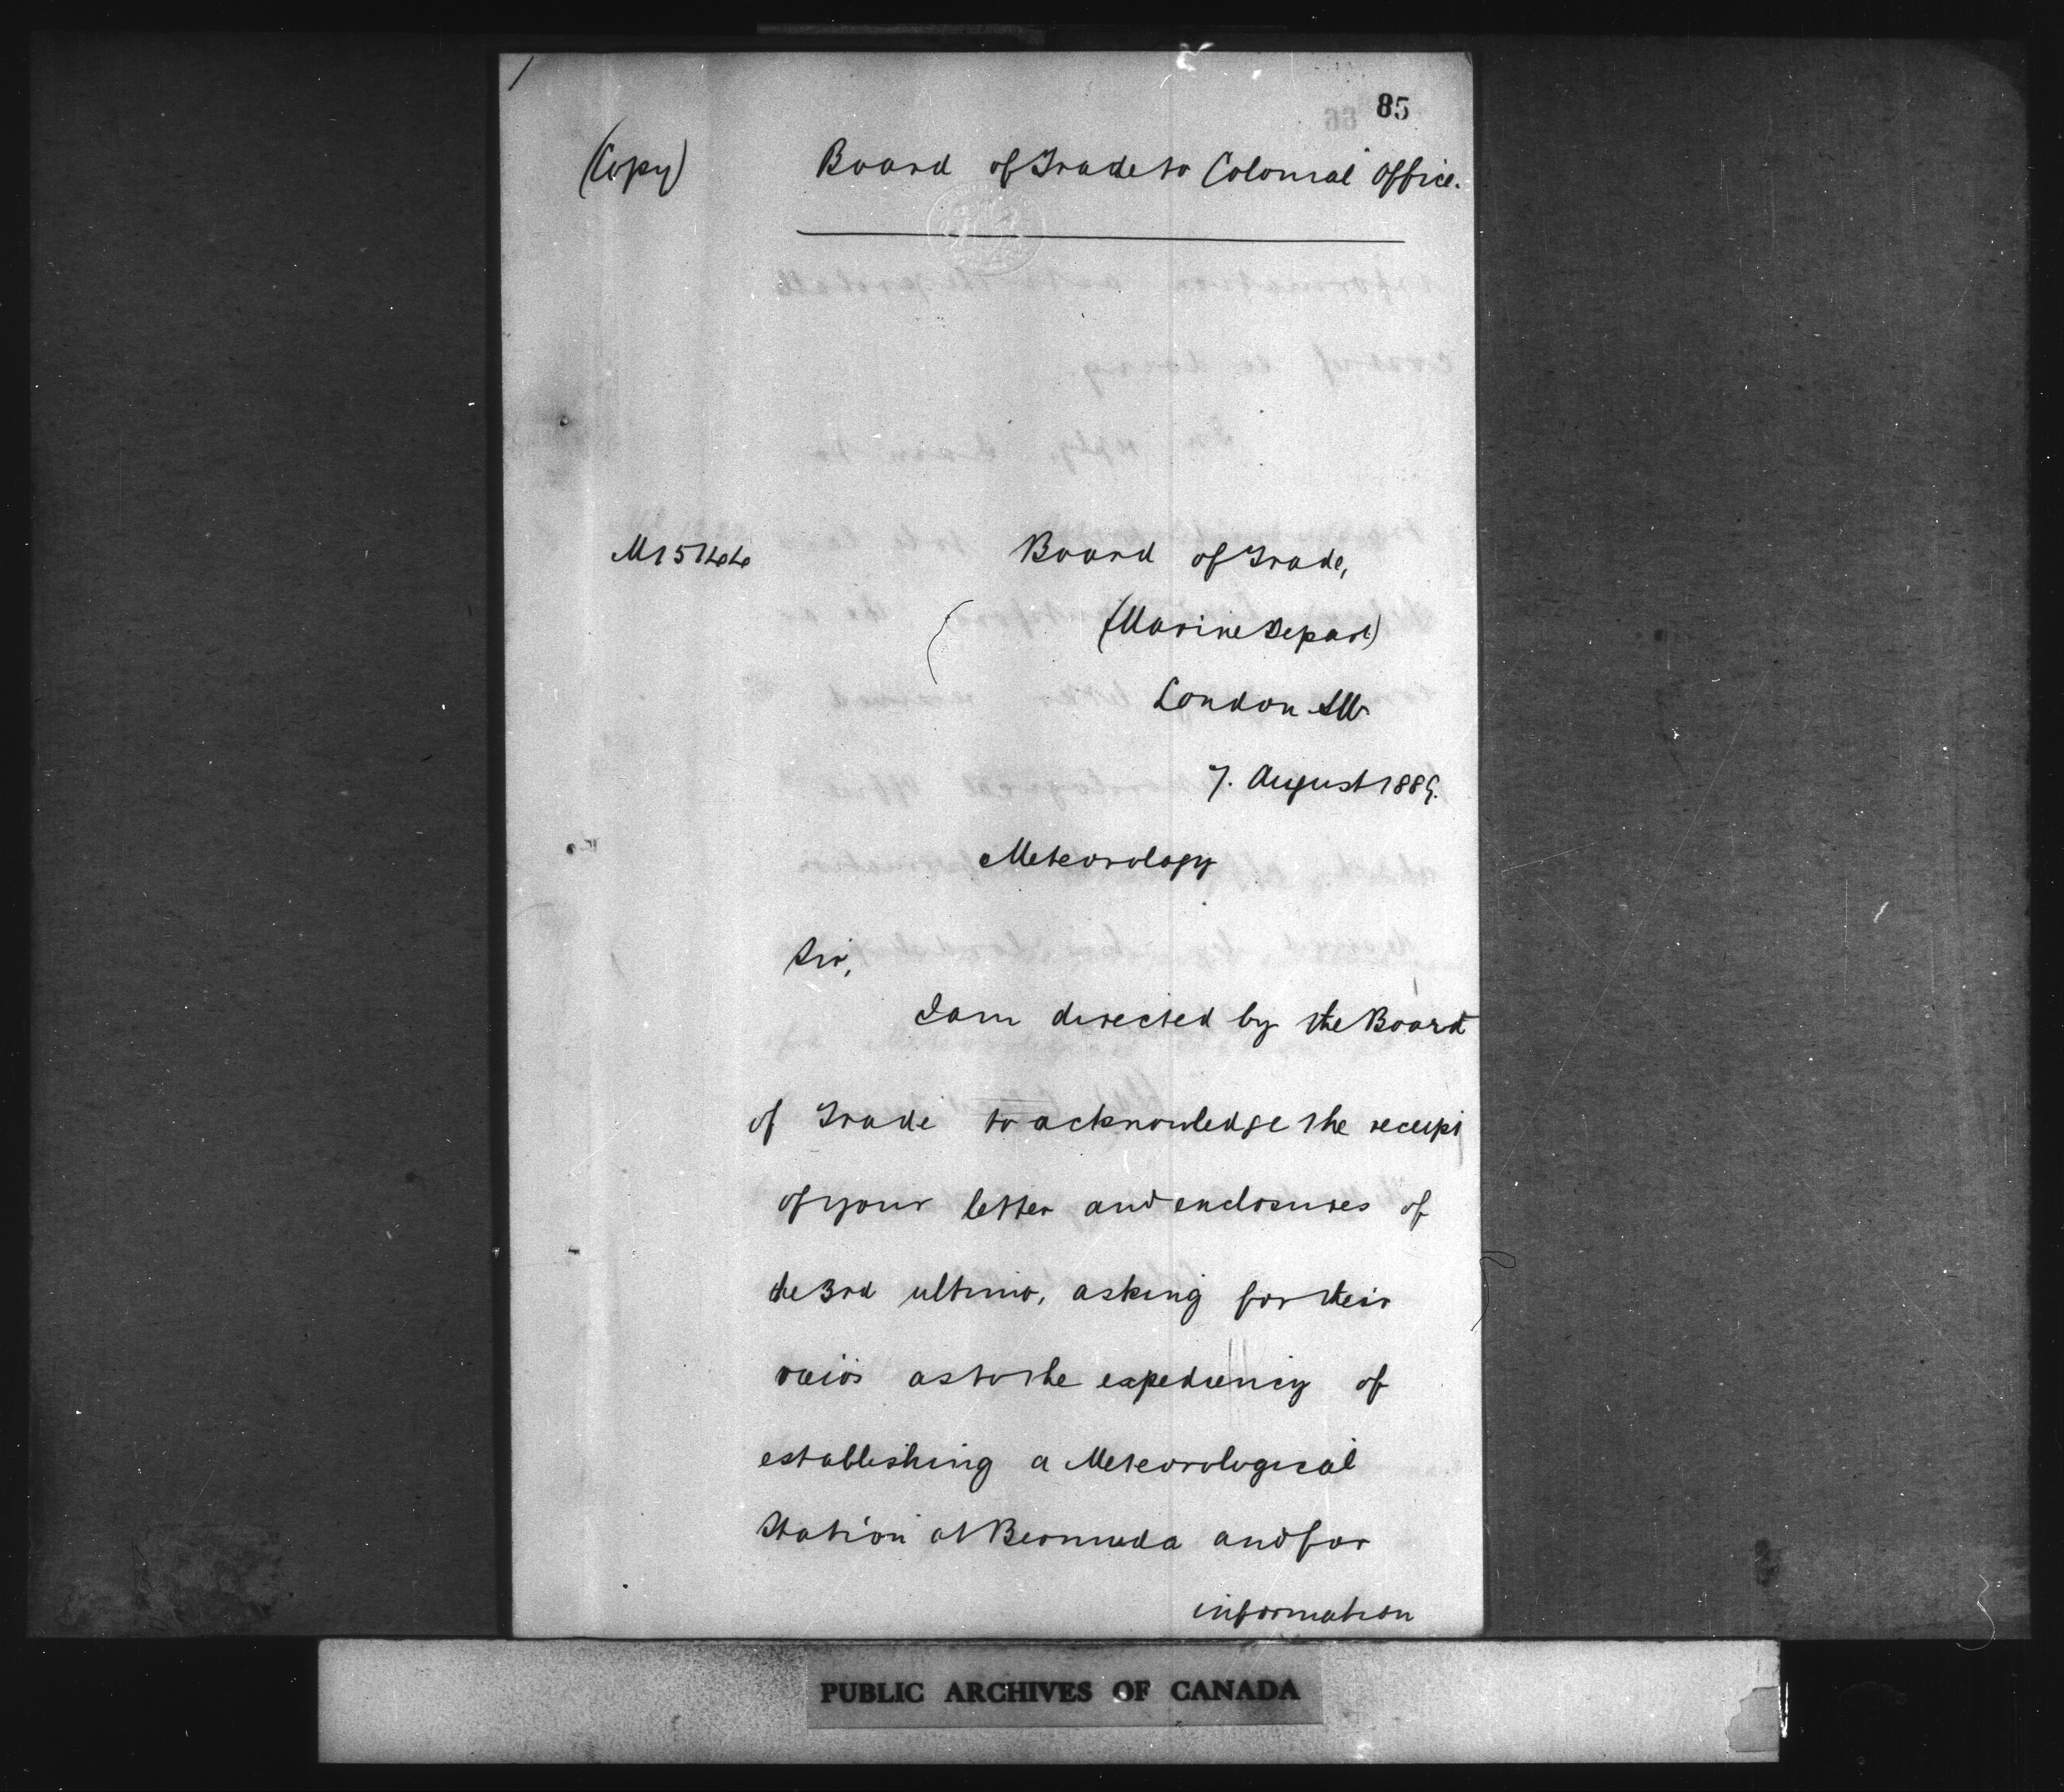 85
(Copy) Board of Trade to Colonial Office.
Board of Trade,
(Marine Depart)
London SW
7. August 1889.
Meteorology
Sir,
I am directed by the Board
of Trade to acknowledge the receipt
of your letter and enclosures of
the 3rd ultimo, asking for their
views as to the expediency of
establishing a Meteorological
Station at Bermuda and for
information
PUBLIC ARCHIVES OF CANADA